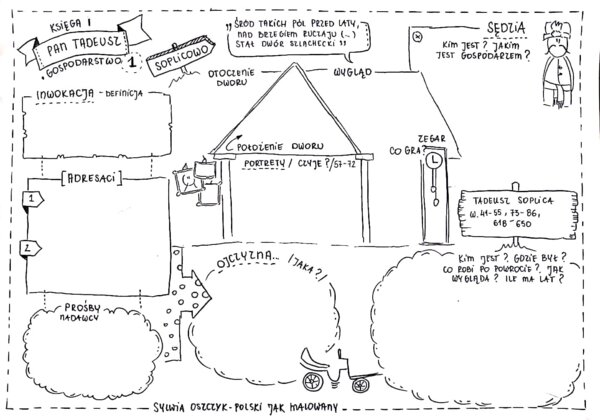 KSIĘGA I
PAN TADEUSZ
GOSPODARSTWO 1
SOPLICOWO
„ŚRÓD TAKICH PÓL PRZED LATY,
NAD BRZEGIEM RUCZAJU (...)
STAŁ DWÓR SZLACHECKI"
SĘDZIA
KIM JEST? JAKIM
JEST GOSPODARZEM?
OTOCZENIE
DWORU
WYGLĄD
INWOKACJA - DEFINICJA
POŁOŻENIE DWORU
PORTRETY / CZYJE? /57-72
ZEGAR
CO GRA?
[ADRESACI]
1
2
TADEUSZ SOPLICA
w. 41-55, 75-86,
618-650
KIM JEST? GDZIE BYŁ?
CO ROBI PO POWROCIE? JAK
WYGLĄDA? ILE MA LAT?
OJCZYZNA... /JAKA?/
PROŚBY
NADAWCY
SYLWIA OSZCZYK-POLSKI JAK MALOWANY